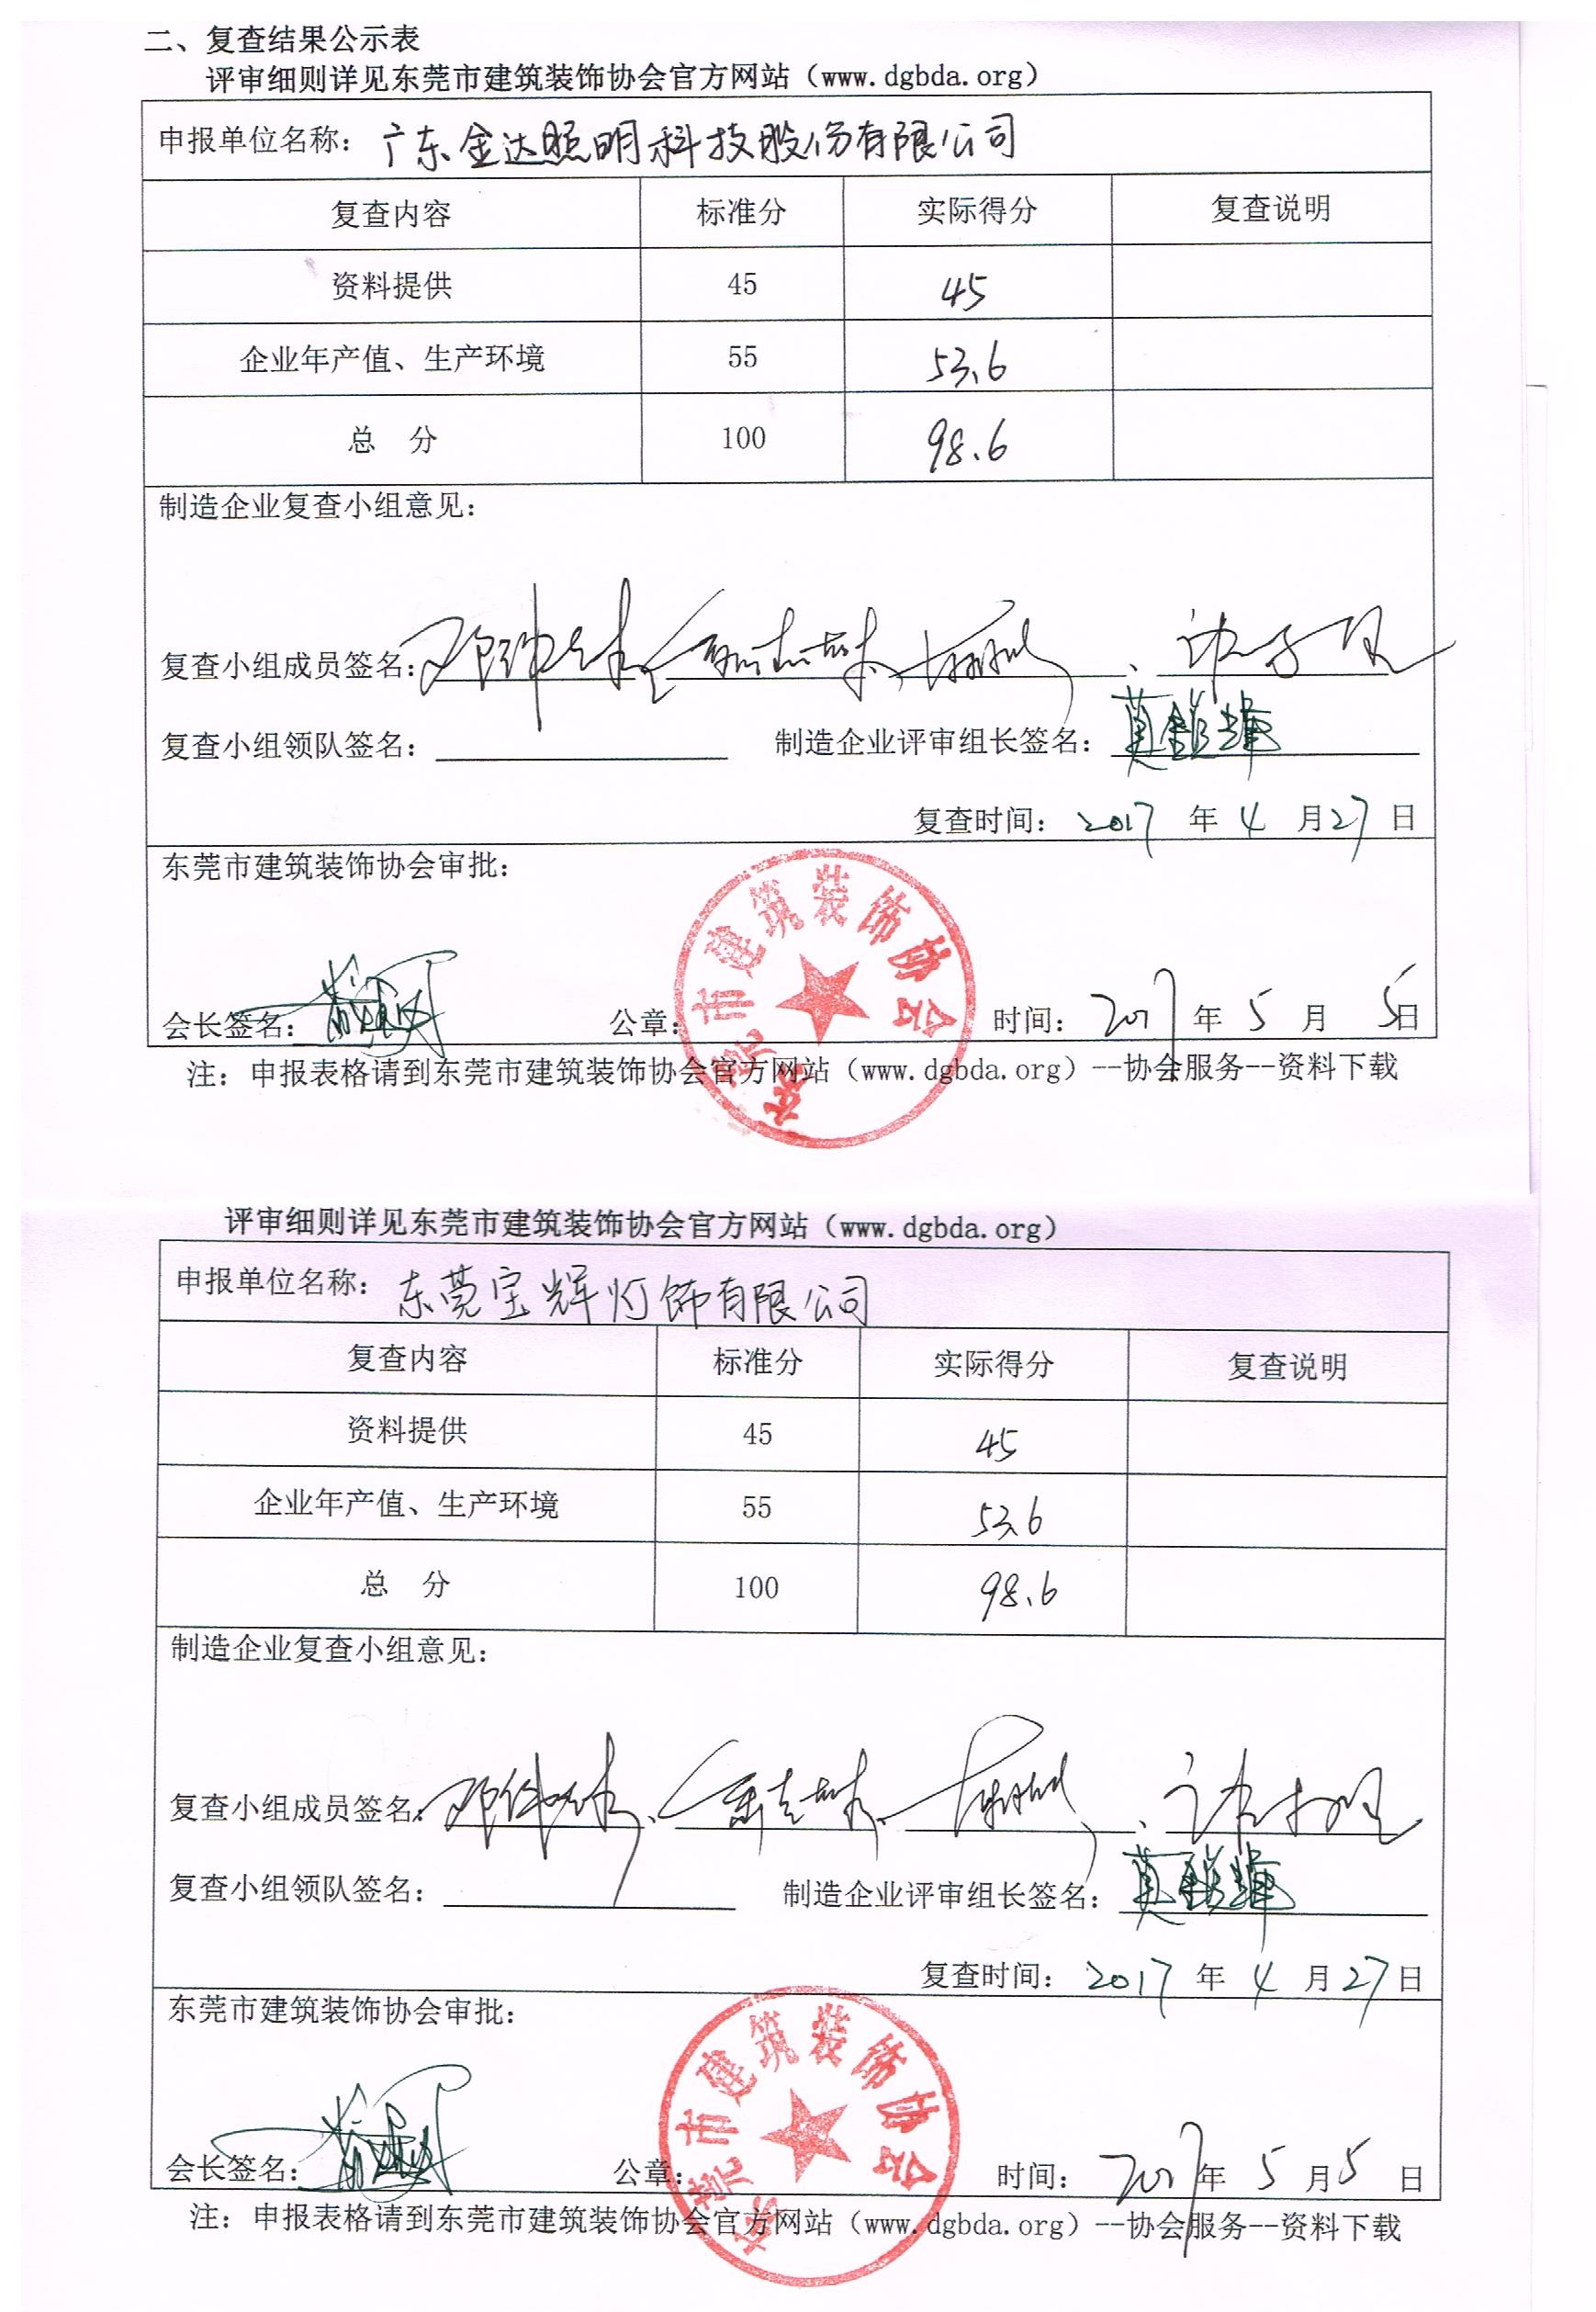 二、复查结果公示表
评审细则详见东莞市建筑装饰协会官方网站（www.dgbda.org）
申报单位名称：广东金达照明科技股份有限公司
复查内容 标准分 实际得分 复查说明
资料提供 45 45
企业年产值、生产环境 55 53.6
总 分 100 98.6
制造企业复查小组意见：
复查小组成员签名：
复查小组领队签名： 制造企业评审组长签名：
复查时间：2017年4月27日
东莞市建筑装饰协会审批：
东莞市建筑装饰协会
会长签名： 公章： 时间：2017年5月5日
注：申报表格请到东莞市建筑装饰协会官方网站（www.dgbda.org）--协会服务--资料下载
评审细则详见东莞市建筑装饰协会官方网站（www.dgbda.org）
申报单位名称：东莞宝辉灯饰有限公司
复查内容 标准分 实际得分 复查说明
资料提供 45 45
企业年产值、生产环境 55 53.6
总 分 100 98.6
制造企业复查小组意见：
复查小组成员签名：
复查小组领队签名： 制造企业评审组长签名：
复查时间：2017年4月27日
东莞市建筑装饰协会审批：
东莞市建筑装饰协会
会长签名： 公章： 时间：2017年5月5日
注：申报表格请到东莞市建筑装饰协会官方网站（www.dgbda.org）--协会服务--资料下载